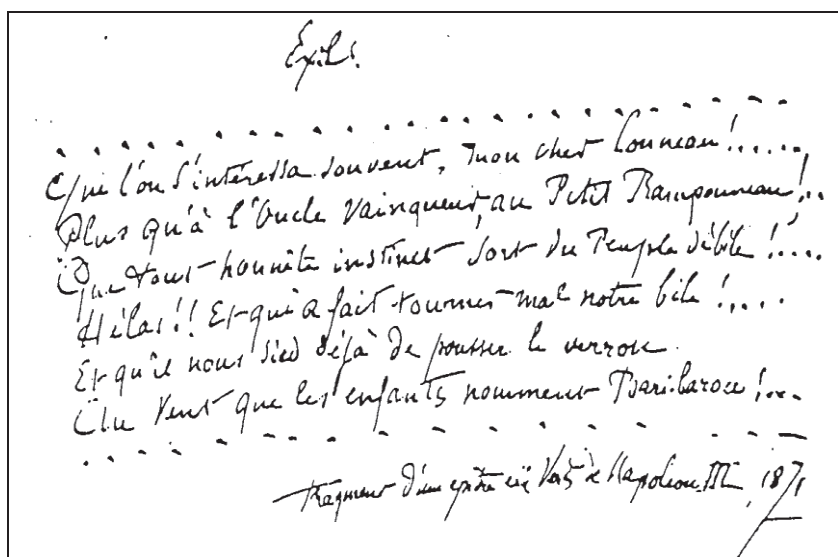 Exil.
. . . . . . . . . . . . . . . . . . . . .
Que l'on s'intéressa souvent, mon cher Conneau !.....
Plus qu'à l'Oncle Vainqueur, au Petit Ramponneau !..
Que tout honnête instinct sort du Peuple débile !....
Hélas !! Et qui a fait tourner mal notre bile !....
Et qu'il nous sied déjà de pousser le verrou
Au Vent que les enfants nomment Bari-barou !...
. . . . . . . . . . . . . . . . . . . . .
Fragment d'une épître en Vers de Napoléon III, 1871